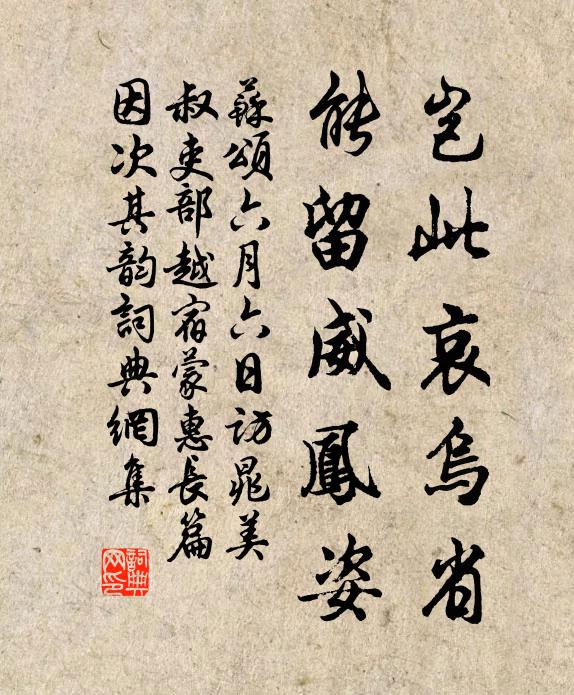 岂此哀乌省
能留威鳳姿
蘇頌六月六日访晁美
叔吏部越宿蒙惠長篇
因次其韵詞典網集
詞典网印